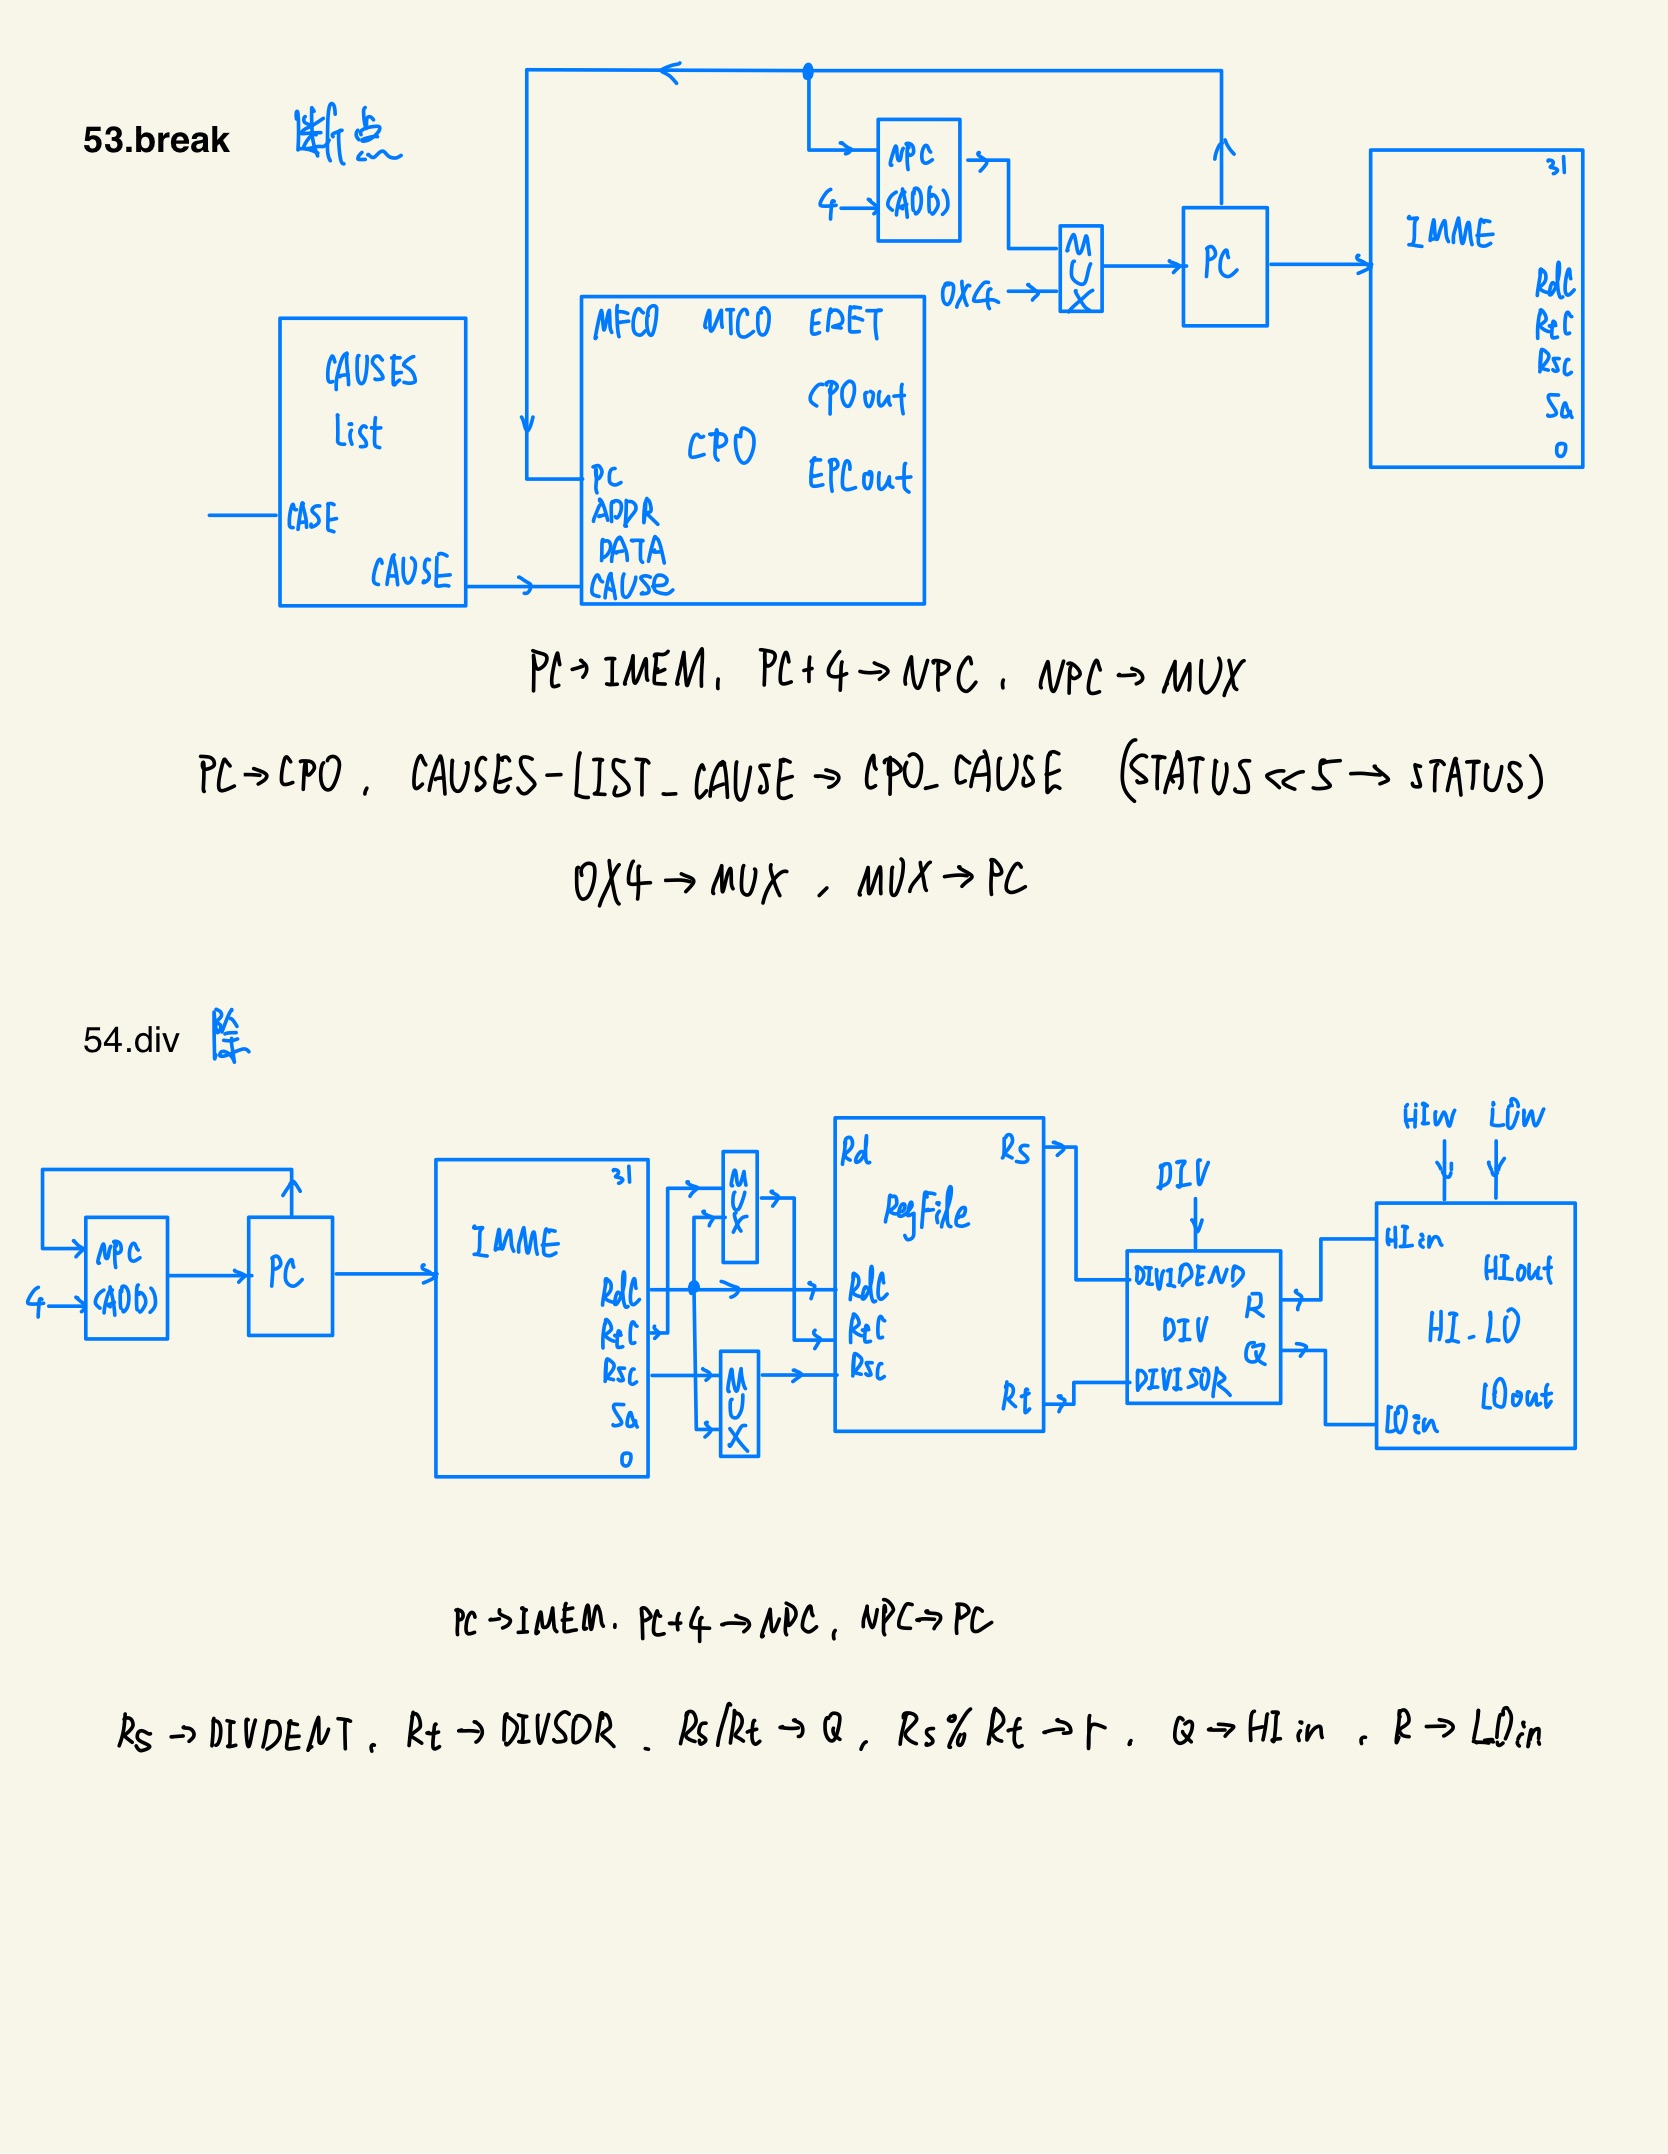 53.break 断点
NPC
(ADD)
4
MUX
0X4
PC
31
IMME
Rdc
Rtc
Rsc
Sa
0
CAUSES
List
CASE
CAUSE
MFC0 MTC0 ERET
CP0out
CP0
EPCout
PC
ADDR
DATA
CAUSe
PC→IMEM, PC+4→NPC, NPC→MUX
PC→CP0, CAUSES-LIST_CAUSE→CP0_CAUSE (STATUS<<5→STATUS)
0X4→MUX, MUX→PC
54.div 除
NPC
(ADD)
4
PC
31
IMME
Rdc
Rtc
Rsc
Sa
0
MUX
MUX
Rd Rs
RegFile
Rdc
Rtc
Rsc
Rt
DIV
DIVIDEND
R
DIV
Q
DIVISOR
HIW LOW
HIin
HIout
HI_LO
LOout
LOin
PC→IMEM. PC+4→NPC, NPC→PC
Rs→DIVDENT, Rt→DIVSOR. Rs/Rt→Q, Rs%Rt→r. Q→HIin, R→LOin